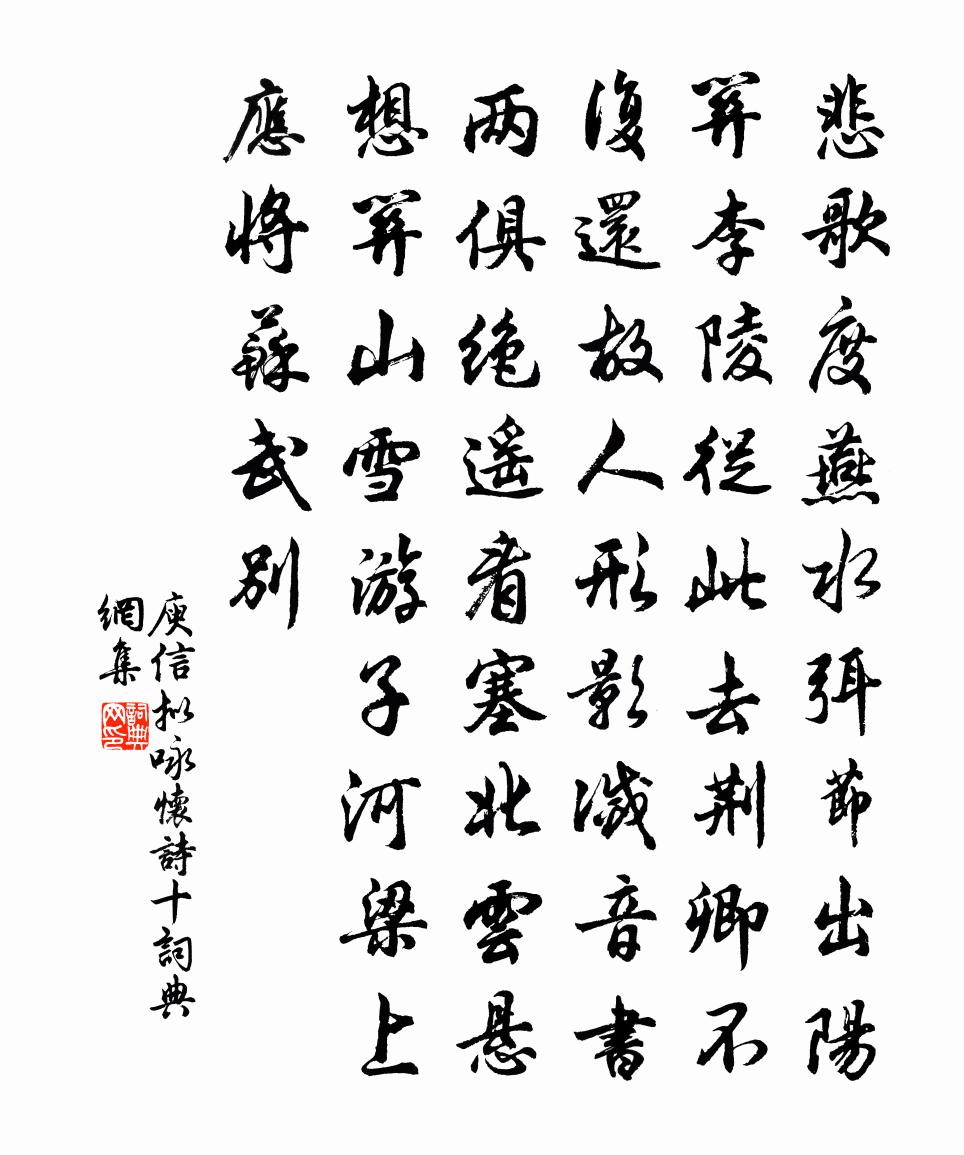 悲歌度燕水弭節出陽
關李陵從此去荆卿不
復還故人形影滅音書
两俱绝遥看塞北雲悬
想關山雪游子河梁上
應將蘇武别
庾信拟咏懷詩十詞典
網集
詞典
网印